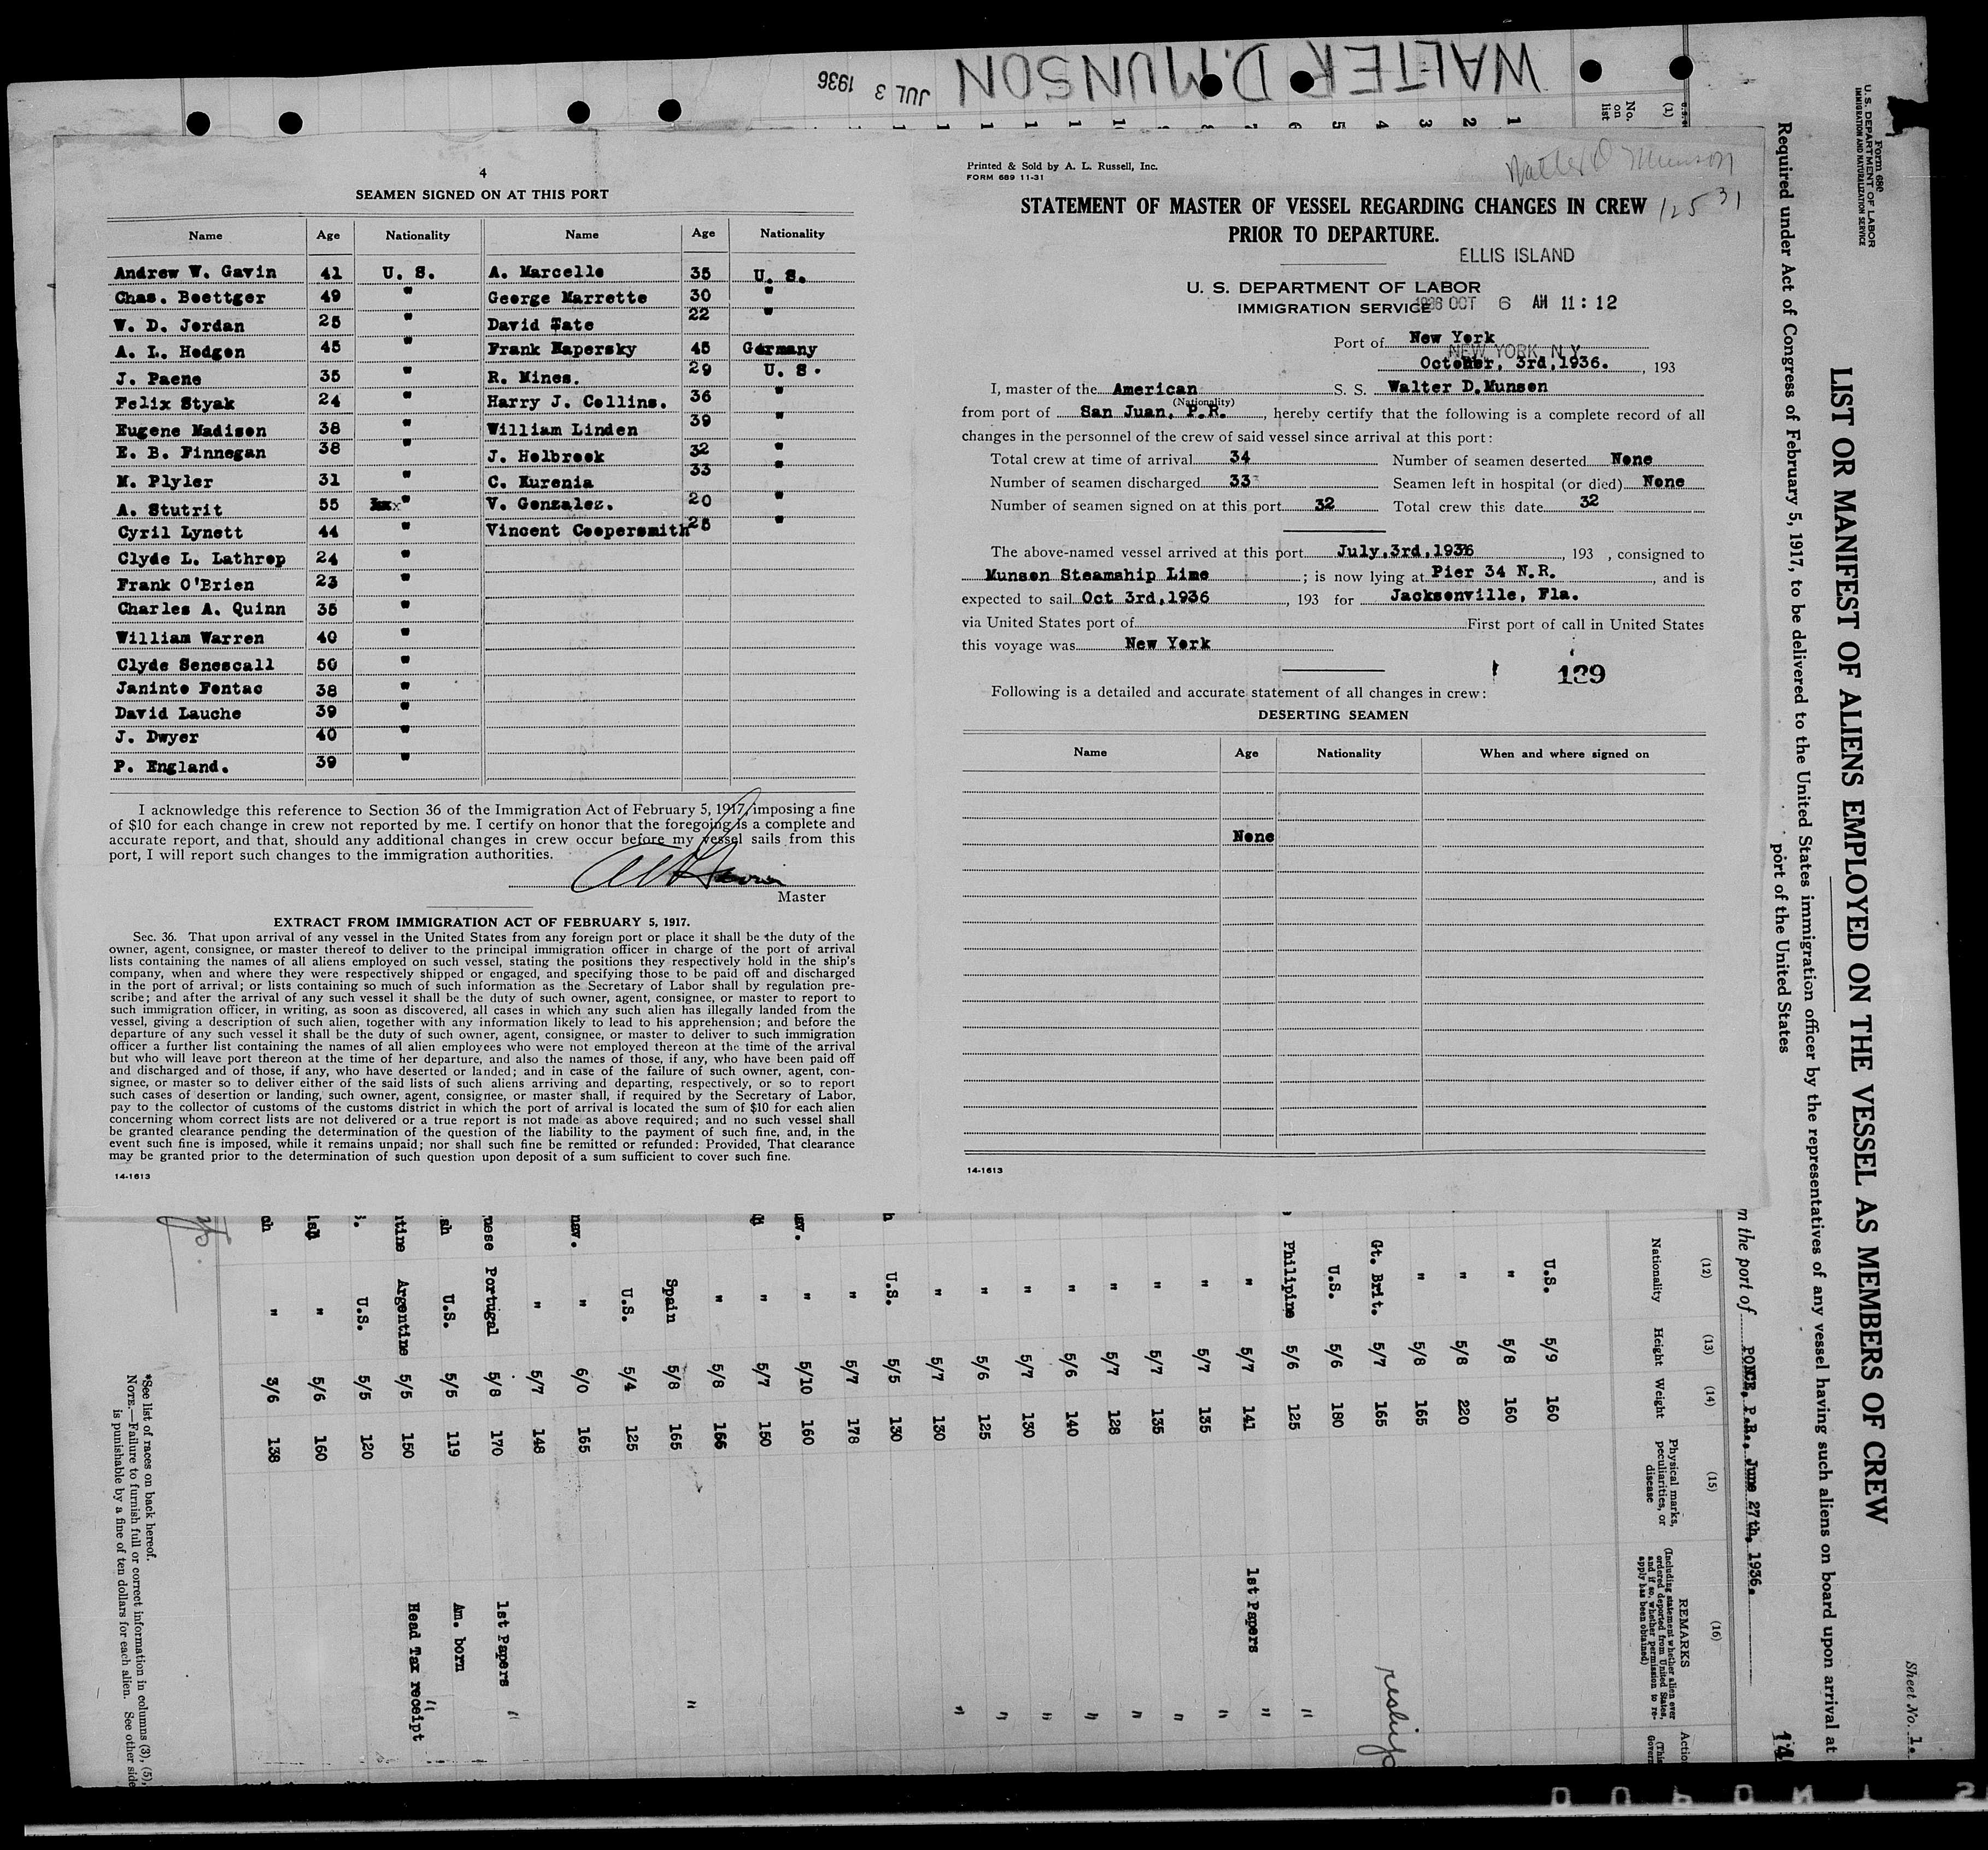 WALTER D. MUNSON
JUL 3 1936
4
SEAMEN SIGNED ON AT THIS PORT
Name Age Nationality Name Age Nationality
Andrew W. Gavin 41 U. S. A. Marcelle 35 U. S.
Chas. Boettger 49 " George Marrette 30 "
W. D. Jordan 25 " David Tate 22 "
A. L. Hodgen 45 " Frank Napersky 45 Germany
J. Paene 35 " R. Mines. 29 U. S.
Felix Styak 24 " Harry J. Collins. 36 "
Eugene Madison 38 " William Linden 39 "
E. B. Finnegan 38 " J. Holbrook 32 "
M. Plyler 31 " C. Kurenia 33 "
A. Stutrit 55 " V. Gonzalez. 20 "
Cyril Lynett 44 " Vincent Coopersmith 25 "
Clyde L. Lathrop 24 "
Frank O'Brien 23 "
Charles A. Quinn 35 "
William Warren 40 "
Clyde Senescall 50 "
Janinto Fontac 38 "
David Lauche 39 "
J. Dwyer 40 "
P. England. 39 "
I acknowledge this reference to Section 36 of the Immigration Act of February 5, 1917, imposing a fine
of $10 for each change in crew not reported by me. I certify on honor that the foregoing is a complete and
accurate report, and that, should any additional changes in crew occur before my vessel sails from this
port, I will report such changes to the immigration authorities.
Master
EXTRACT FROM IMMIGRATION ACT OF FEBRUARY 5, 1917.
Sec. 36. That upon arrival of any vessel in the United States from any foreign port or place it shall be the duty of the
owner, agent, consignee, or master thereof to deliver to the principal immigration officer in charge of the port of arrival
lists containing the names of all aliens employed on such vessel, stating the positions they respectively hold in the ship's
company, when and where they were respectively shipped or engaged, and specifying those to be paid off and discharged
in the port of arrival; or lists containing so much of such information as the Secretary of Labor shall by regulation pre-
scribe; and after the arrival of any such vessel it shall be the duty of such owner, agent, consignee, or master to report to
such immigration officer, in writing, as soon as discovered, all cases in which any such alien has illegally landed from the
vessel, giving a description of such alien, together with any information likely to lead to his apprehension; and before the
departure of any such vessel it shall be the duty of such owner, agent, consignee, or master to deliver to such immigration
officer a further list containing the names of all alien employees who were not employed thereon at the time of the arrival
but who will leave port thereon at the time of her departure, and also the names of those, if any, who have been paid off
and discharged and of those, if any, who have deserted or landed; and in case of the failure of such owner, agent, con-
signee, or master so to deliver either of the said lists of such aliens arriving and departing, respectively, or so to report
such cases of desertion or landing, such owner, agent, consignee, or master shall, if required by the Secretary of Labor,
pay to the collector of customs of the customs district in which the port of arrival is located the sum of $10 for each alien
concerning whom correct lists are not delivered or a true report is not made as above required; and no such vessel shall
be granted clearance pending the determination of the question of the liability to the payment of such fine, and, in the
event such fine is imposed, while it remains unpaid; nor shall such fine be remitted or refunded: Provided, That clearance
may be granted prior to the determination of such question upon deposit of a sum sufficient to cover such fine.
14-1613
Printed & Sold by A. L. Russell, Inc.
FORM 689 11-31
Walter D Munson
12531
STATEMENT OF MASTER OF VESSEL REGARDING CHANGES IN CREW
PRIOR TO DEPARTURE.
ELLIS ISLAND
U. S. DEPARTMENT OF LABOR
IMMIGRATION SERVICE
1936 OCT 6 AM 11:12
Port of New York
NEW YORK N.Y.
October, 3rd, 1936. , 193
I, master of the American S. S. Walter D. Munson
(Nationality)
from port of San Juan, P.R. , hereby certify that the following is a complete record of all
changes in the personnel of the crew of said vessel since arrival at this port:
Total crew at time of arrival 34 Number of seamen deserted None
Number of seamen discharged 33 Seamen left in hospital (or died) None
Number of seamen signed on at this port 32 Total crew this date 32
The above-named vessel arrived at this port July, 3rd, 1936 , 193 , consigned to
Munson Steamship Line ; is now lying at Pier 34 N.R. , and is
expected to sail Oct 3rd, 1936 , 193 for Jacksonville, Fla.
via United States port of First port of call in United States
this voyage was New York
139
Following is a detailed and accurate statement of all changes in crew:
DESERTING SEAMEN
Name Age Nationality When and where signed on
None
14-1613
Form 680
U. S. DEPARTMENT OF LABOR
IMMIGRATION AND NATURALIZATION SERVICE
Sheet No. 1.
LIST OR MANIFEST OF ALIENS EMPLOYED ON THE VESSEL AS MEMBERS OF CREW
Required under Act of Congress of February 5, 1917, to be delivered to the United States immigration officer by the representatives of any vessel having such aliens on board upon arrival at
port of the United States
14
m the port of PONCE, P.R., June 27th, 1936.
(1)
No. on list
(12) (13) (14) (15) (16)
Nationality Height Weight Physical marks, peculiarities, or disease REMARKS
(Including statement whether alien ever
ordered deported from United States,
and if so, whether permission to re-
apply has been obtained)
U.S. 5/9 160
" 5/8 160
" 5/8 220
" 5/8 165
Gt. Brit. 5/7 165 reship
U.S. 5/6 180
Philipine 5/6 125 "
" 5/7 141 1st Papers "
" 5/7 135 "
" 5/7 135 "
" 5/7 128 "
" 5/6 140 "
" 5/7 130 "
" 5/6 125 "
" 5/7 130 "
U.S. 5/5 130
" 5/7 178
" 5/10 160
" 5/7 150
" 5/8 166
Spain 5/8 165 "
U.S. 5/4 125
" 6/0 165
" 5/7 148
Portugal 5/8 170 1st Papers "
U.S. 5/5 119 Am. born
Argentine 5/5 150 Head Tax receipt "
U.S. 5/5 120
" 5/6 160
" 3/6 138
*See list of races on back hereof.
NOTE.—Failure to furnish full or correct information in columns (3), (5),
is punishable by a fine of ten dollars for each alien. See other side